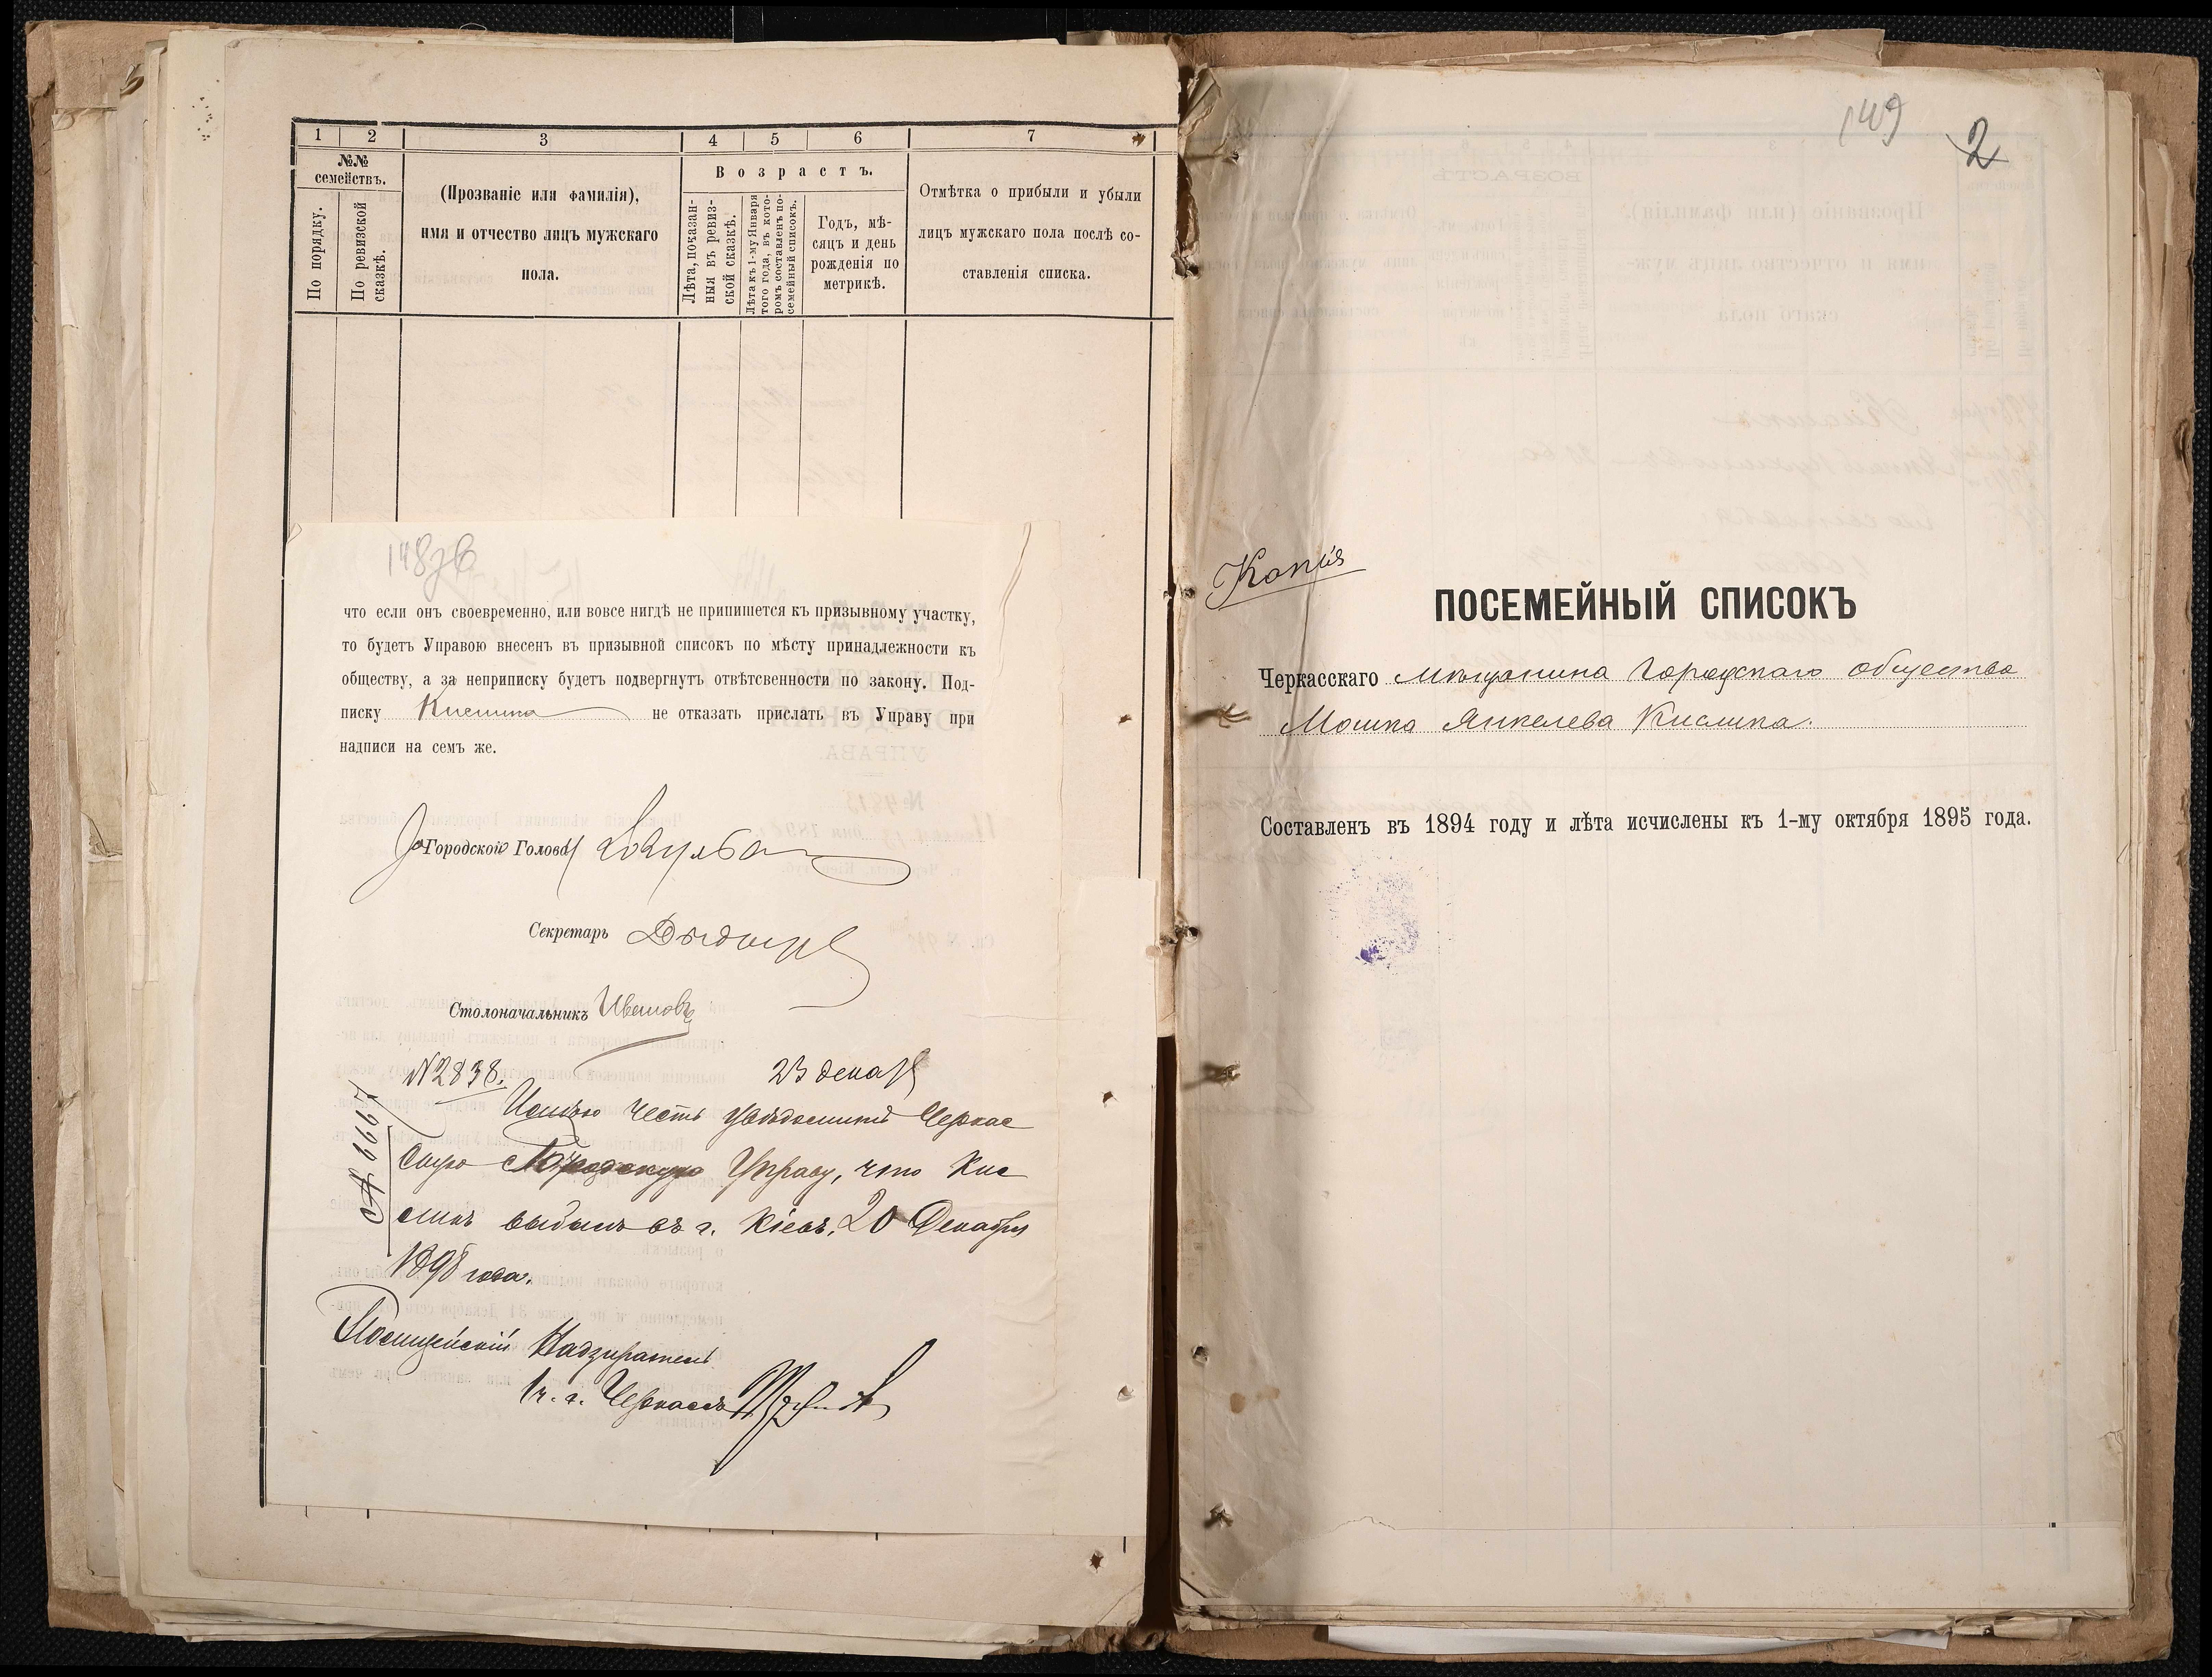 1 2 3 4 5 6 7
№№ семействъ.
По порядку.
По ревизской сказкѣ.
(Прозваніе или фамилія),
имя и отчество лицъ мужскаго
пола.
Возрастъ.
Лѣта, показан-
ныя въ ревиз-
ской сказкѣ.
Лѣта къ 1-му Января
того года, въ кото-
ромъ составленъ по-
семейный списокъ.
Годъ, мѣ-
сяцъ и день
рожденія по
метрикѣ.
Отмѣтка о прибыли и убыли
лицъ мужскаго пола послѣ со-
ставленія списка.
148зв
что если онъ своевременно, или вовсе нигдѣ не припишется къ призывному участку,
то будетъ Управою внесенъ въ призывной списокъ по мѣсту принадлежности къ
обществу, а за неприписку будетъ подвергнутъ отвѣтсвенности по закону. Под-
писку Кислика не отказать прислать въ Управу при
надписи на семъ же.
За Городской Голова
Секретарь
Столоначальникъ Ивановъ
№2838. 23 декаб
Имѣю честь увѣдомить Черкас
скую Городскую Управу, что Кис
ликъ выбылъ въ г. Кіевъ. 20 Декабря
1898 года.
Полицейскій Надзиратель
1 ч. г. Черкассъ
149
2
Копія
ПОСЕМЕЙНЫЙ СПИСОКЪ
Черкасскаго мѣщанина Городскаго общества
Мошка Янкелева Кислика.
Составленъ въ 1894 году и лѣта исчислены къ 1-му октября 1895 года.